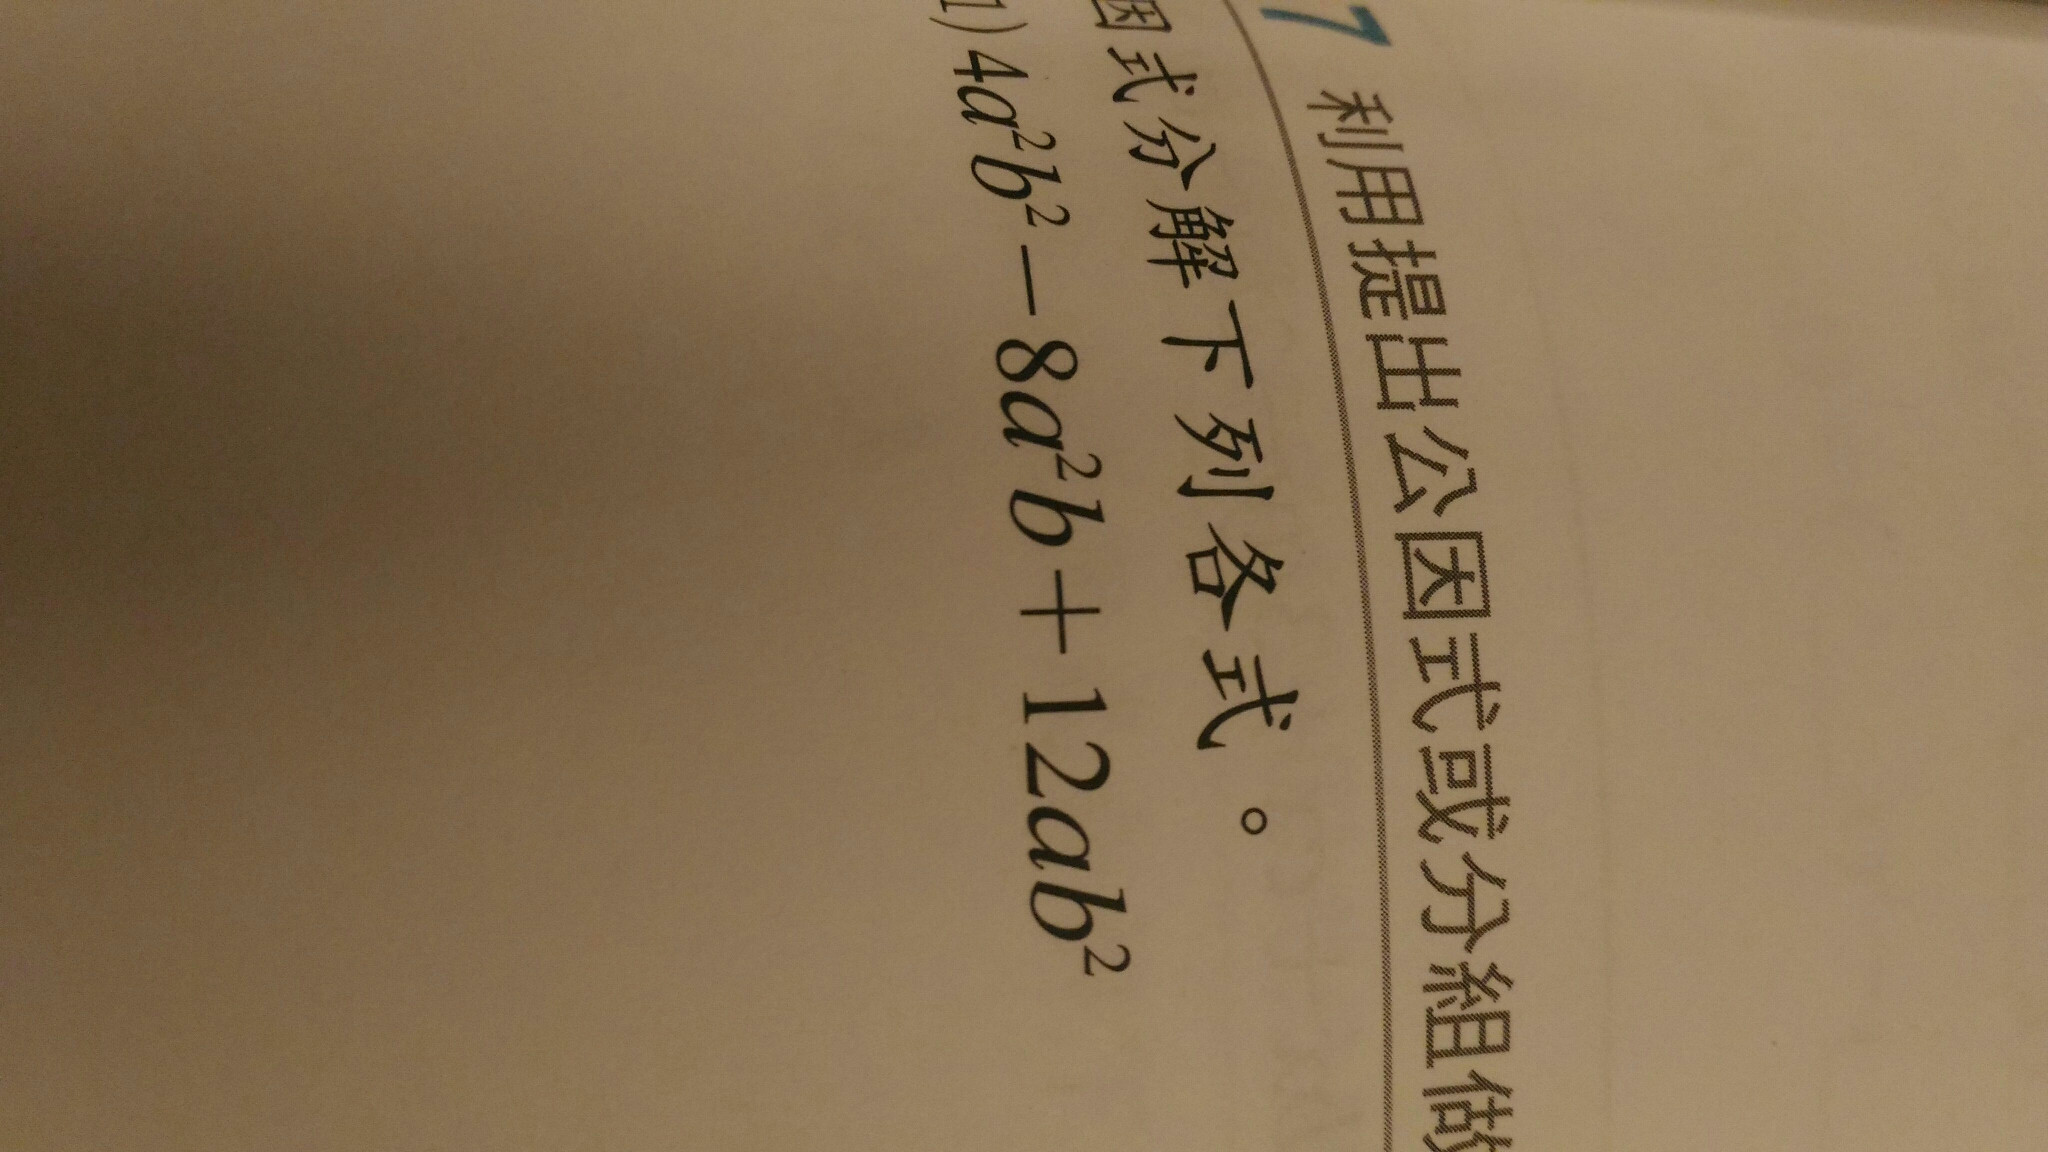 7 利用提出公因式或分組做
因式分解下列各式。
1) 4a²b²－8a²b＋12ab²